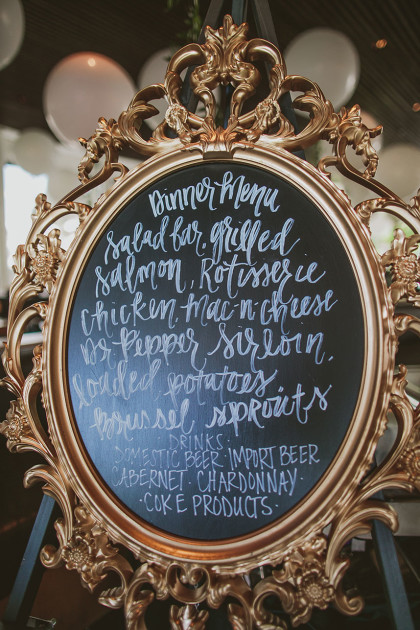 Dinner Menu
Salad bar, grilled
Salmon, Rotisserie
chicken, mac'n'cheese
Dr Pepper Sirloin,
loaded potatoes
brussel sprouts
DRINKS·
DOMESTIC BEER· IMPORT BEER
CABERNET· CHARDONNAY·
COKE PRODUCTS·